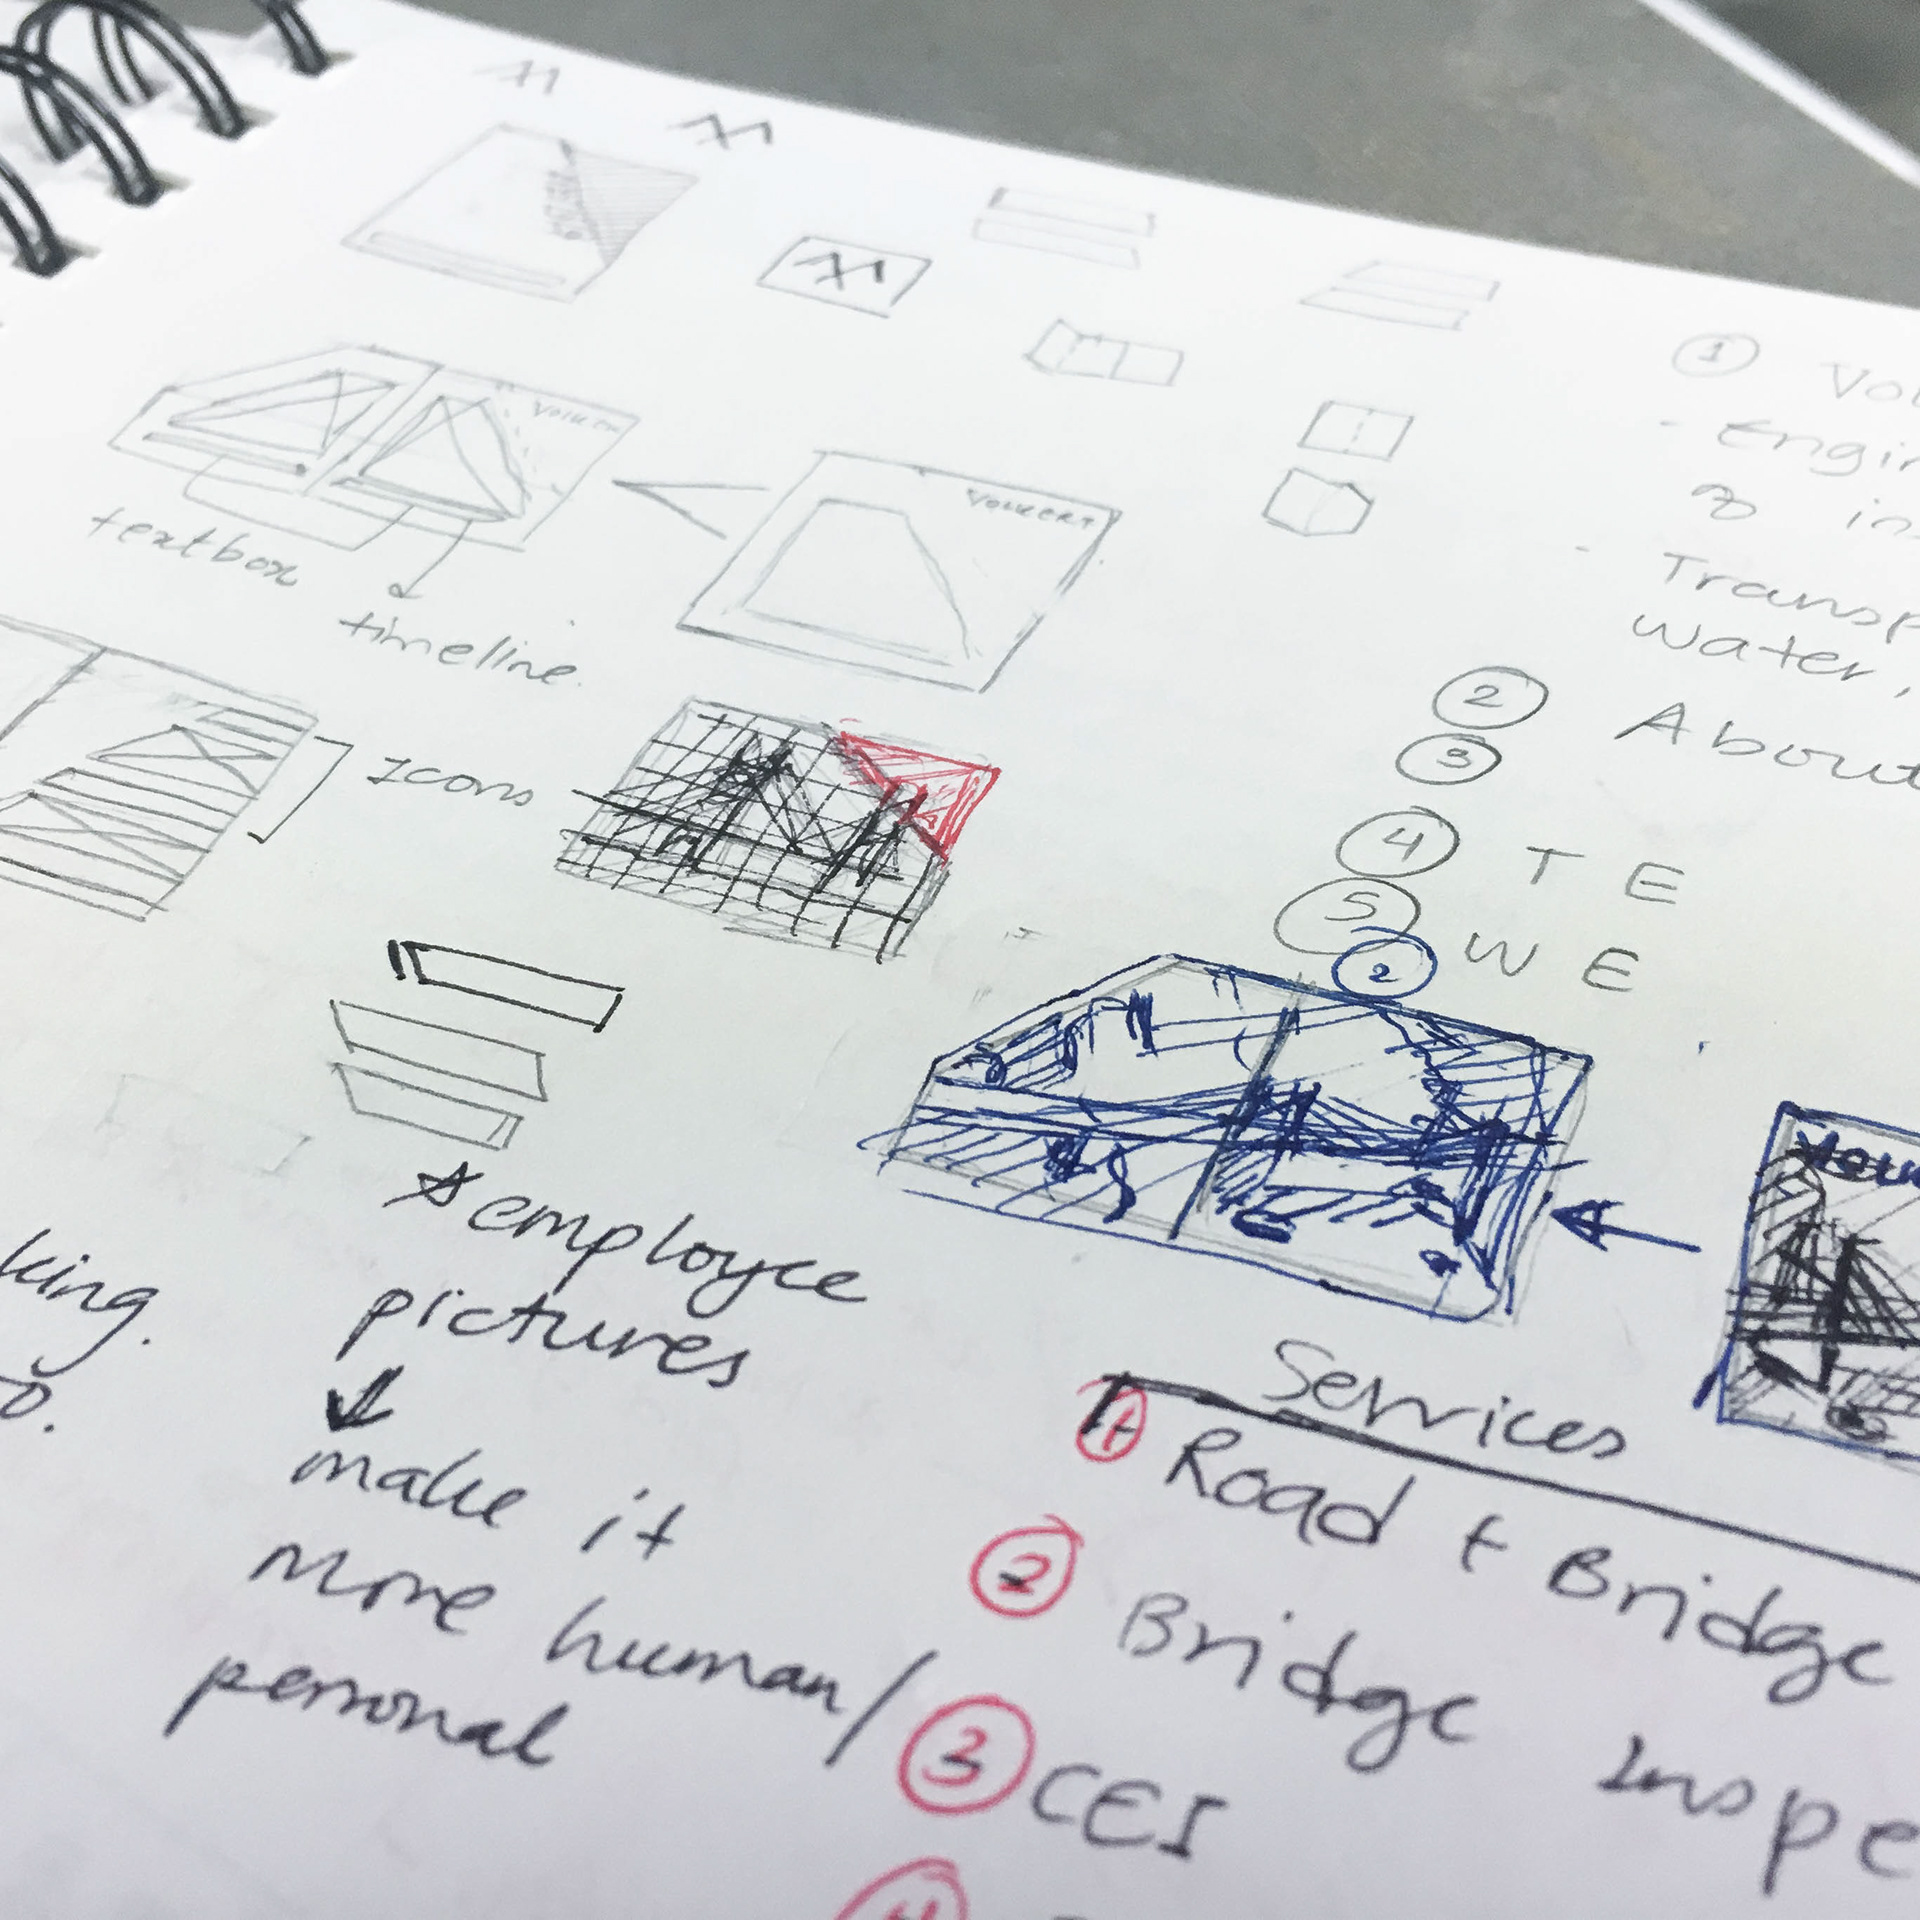 VOLKERT
VOLKERT
textbox
timeline.
Icons
1 Vol
- Engin
& ins
- Transp
water,
2 About
3
4 T E
5 W E
2
king.
o.
* employee
pictures
make it
more human/
personal
Services
1 Road + Bridge
2 Bridge Inspe
3 CEI
4